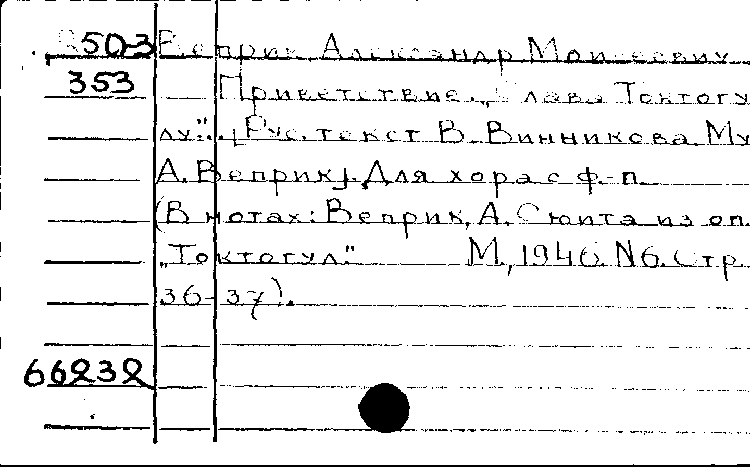 503 Веприк, Александр Моисеевич
353 Приветствие. „Слава Токтогу
лу". [Рус. текст В. Винникова. Му
А. Веприк]. Для хора с ф.-п.
(В нотах: Веприк, А. Сюита из оп.
„Токтогул." М., 1946. N6. Стр.
36-37).
66232